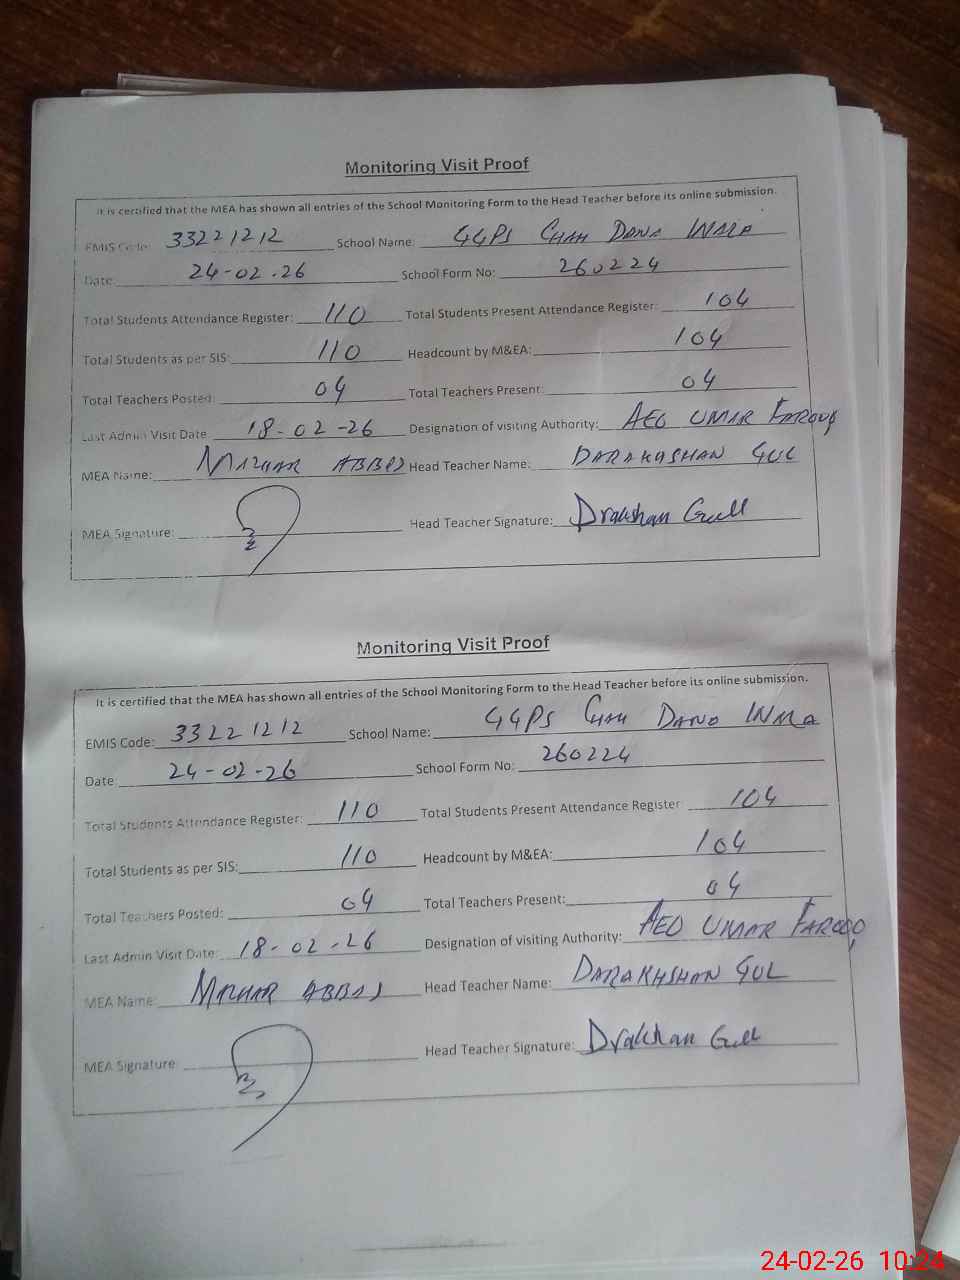 Monitoring Visit Proof
It is certified that the MEA has shown all entries of the School Monitoring Form to the Head Teacher before its online submission.
EMIS Code: 33221212 School Name: GGPS CHAH DANA WALA
Date: 24-02-26 School Form No: 260224
Total Students Attendance Register: 110 Total Students Present Attendance Register: 104
Total Students as per SIS: 110 Headcount by M&EA: 104
Total Teachers Posted: 04 Total Teachers Present: 04
Last Admin Visit Date 18-02-26 Designation of visiting Authority: AEO UMAR FAROOQ
MEA Name: MAZHAR ABBAS Head Teacher Name: DARAKHSHAN GUL
MEA Signature: Head Teacher Signature: Drakshan Gull
Monitoring Visit Proof
It is certified that the MEA has shown all entries of the School Monitoring Form to the Head Teacher before its online submission.
EMIS Code: 33221212 School Name: GGPS CHAH DANA WALA
Date: 24-02-26 School Form No: 260224
Total Students Attendance Register: 110 Total Students Present Attendance Register 104
Total Students as per SIS: 110 Headcount by M&EA: 104
Total Teachers Posted: 04 Total Teachers Present: 04
Last Admin Visit Date: 18-02-26 Designation of visiting Authority: AEO UMAR FAROOQ
MEA Name: MAZHAR ABBAS Head Teacher Name: DARAKHSHAN GUL
MEA Signature: Head Teacher Signature: Drakhan Gull
24-02-26 10:24